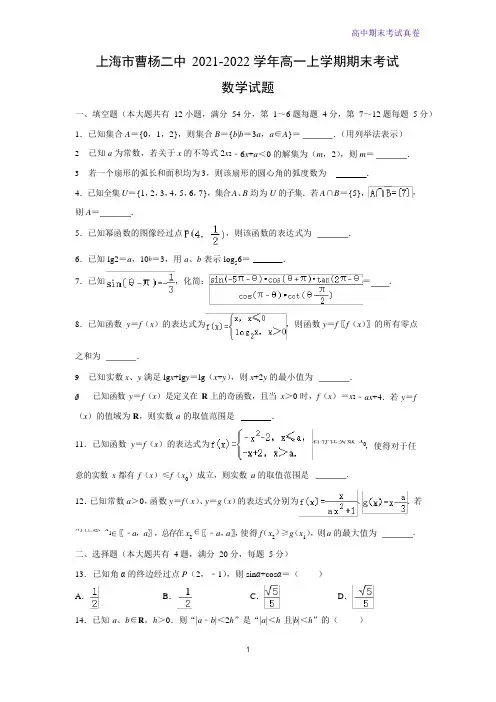 高中期末考试真卷
上海市曹杨二中 2021-2022学年高一上学期期末考试
数学试题
一、填空题（本大题共有 12小题，满分 54分，第 1～6题每题 4分，第 7～12题每题 5分）
1．已知集合A={0，1，2}，则集合B={b|b=3a，a∈A}=______.（用列举法表示）
2 已知a为常数，若关于x的不等式2x2﹣6x+a＜0的解集为（m，2），则m=______．
3 若一个扇形的弧长和面积均为3，则该扇形的圆心角的弧度数为 ______．
4．已知全集U={1，2，3，4，5，6，7}，集合A、B均为U的子集．若A∩B={5}，A∩B={7}，
则A=______．
5．已知幂函数的图像经过点P(4, 1/2)，则该函数的表达式为 ______．
6．已知lg2=a，10b=3，用a、b表示log26=______．
7．已知sin(θ-π)=1/3，化简：sin(-5π-θ)•cos(θ+π)•tan(2π-θ)/cos(π-θ)•cot(θ-π/2)=____．
8．已知函数 y=f（x）的表达式为f(x)={x, x≤0 log2x, x＞0，则函数y=f〖f（x）〗的所有零点
之和为 ______．
9 已知实数x、y满足lgx+lgy=lg（x+y），则x+2y的最小值为 ______．
已知函数 y=f（x）是定义在 R上的奇函数，且当 x＞0时，f（x）=x2﹣ax+4．若 y=f
（x）的值域为R，则实数a的取值范围是 ______．
11．已知函数 y=f（x）的表达式为f(x)={-x²-2, x≤a, -x+2, x＞a. 若存在实数 x0，使得对于任
意的实数 x都有 f（x）≤f（x0）成立，则实数 a的取值范围是 ______．
12．已知常数a＞0，函数y=f（x）、y=g（x）的表达式分别为f(x)=x/ax²+1、g(x)=x-a/3．若
∈〖﹣a，a〗，总存在x2∈〖﹣a，a〗，使得f（x2）≥g（x1），则a的最大值为 ______．
二、选择题（本大题共有 4题，满分 20分，每题 5分）
13．已知角α的终边经过点P（2，﹣1），则sinα+cosα=（ ）
A．1/2 B．-1/2 C．√5/5 D．-√5/5
14．已知a、b∈R，h＞0．则“|a﹣b|＜2h”是“|a|＜h 且|b|＜h”的（ ）
1